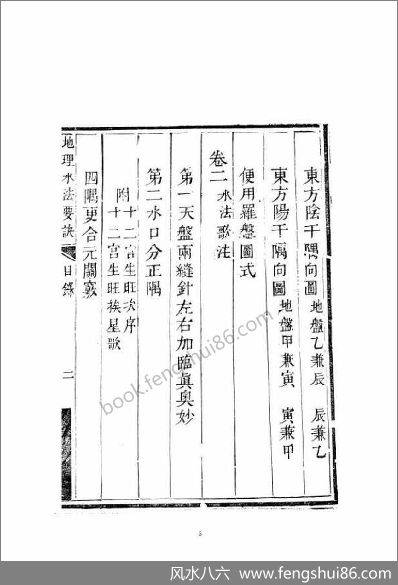 東方陰干隅向圖 地盤乙兼辰 辰兼乙
東方陽干隅向圖 地盤甲兼寅 寅兼甲
便用羅盤圖式
卷二 水法歌注
第一天盤兩縫針左右加臨眞奥妙
第二水口分正隅
附十二宮生旺次序
十二宮生旺挨星歌
四隅更合元關竅
地理水法要訣 目錄 二
book.fengshui86.com
5
风水八六 www.fengshui86.com